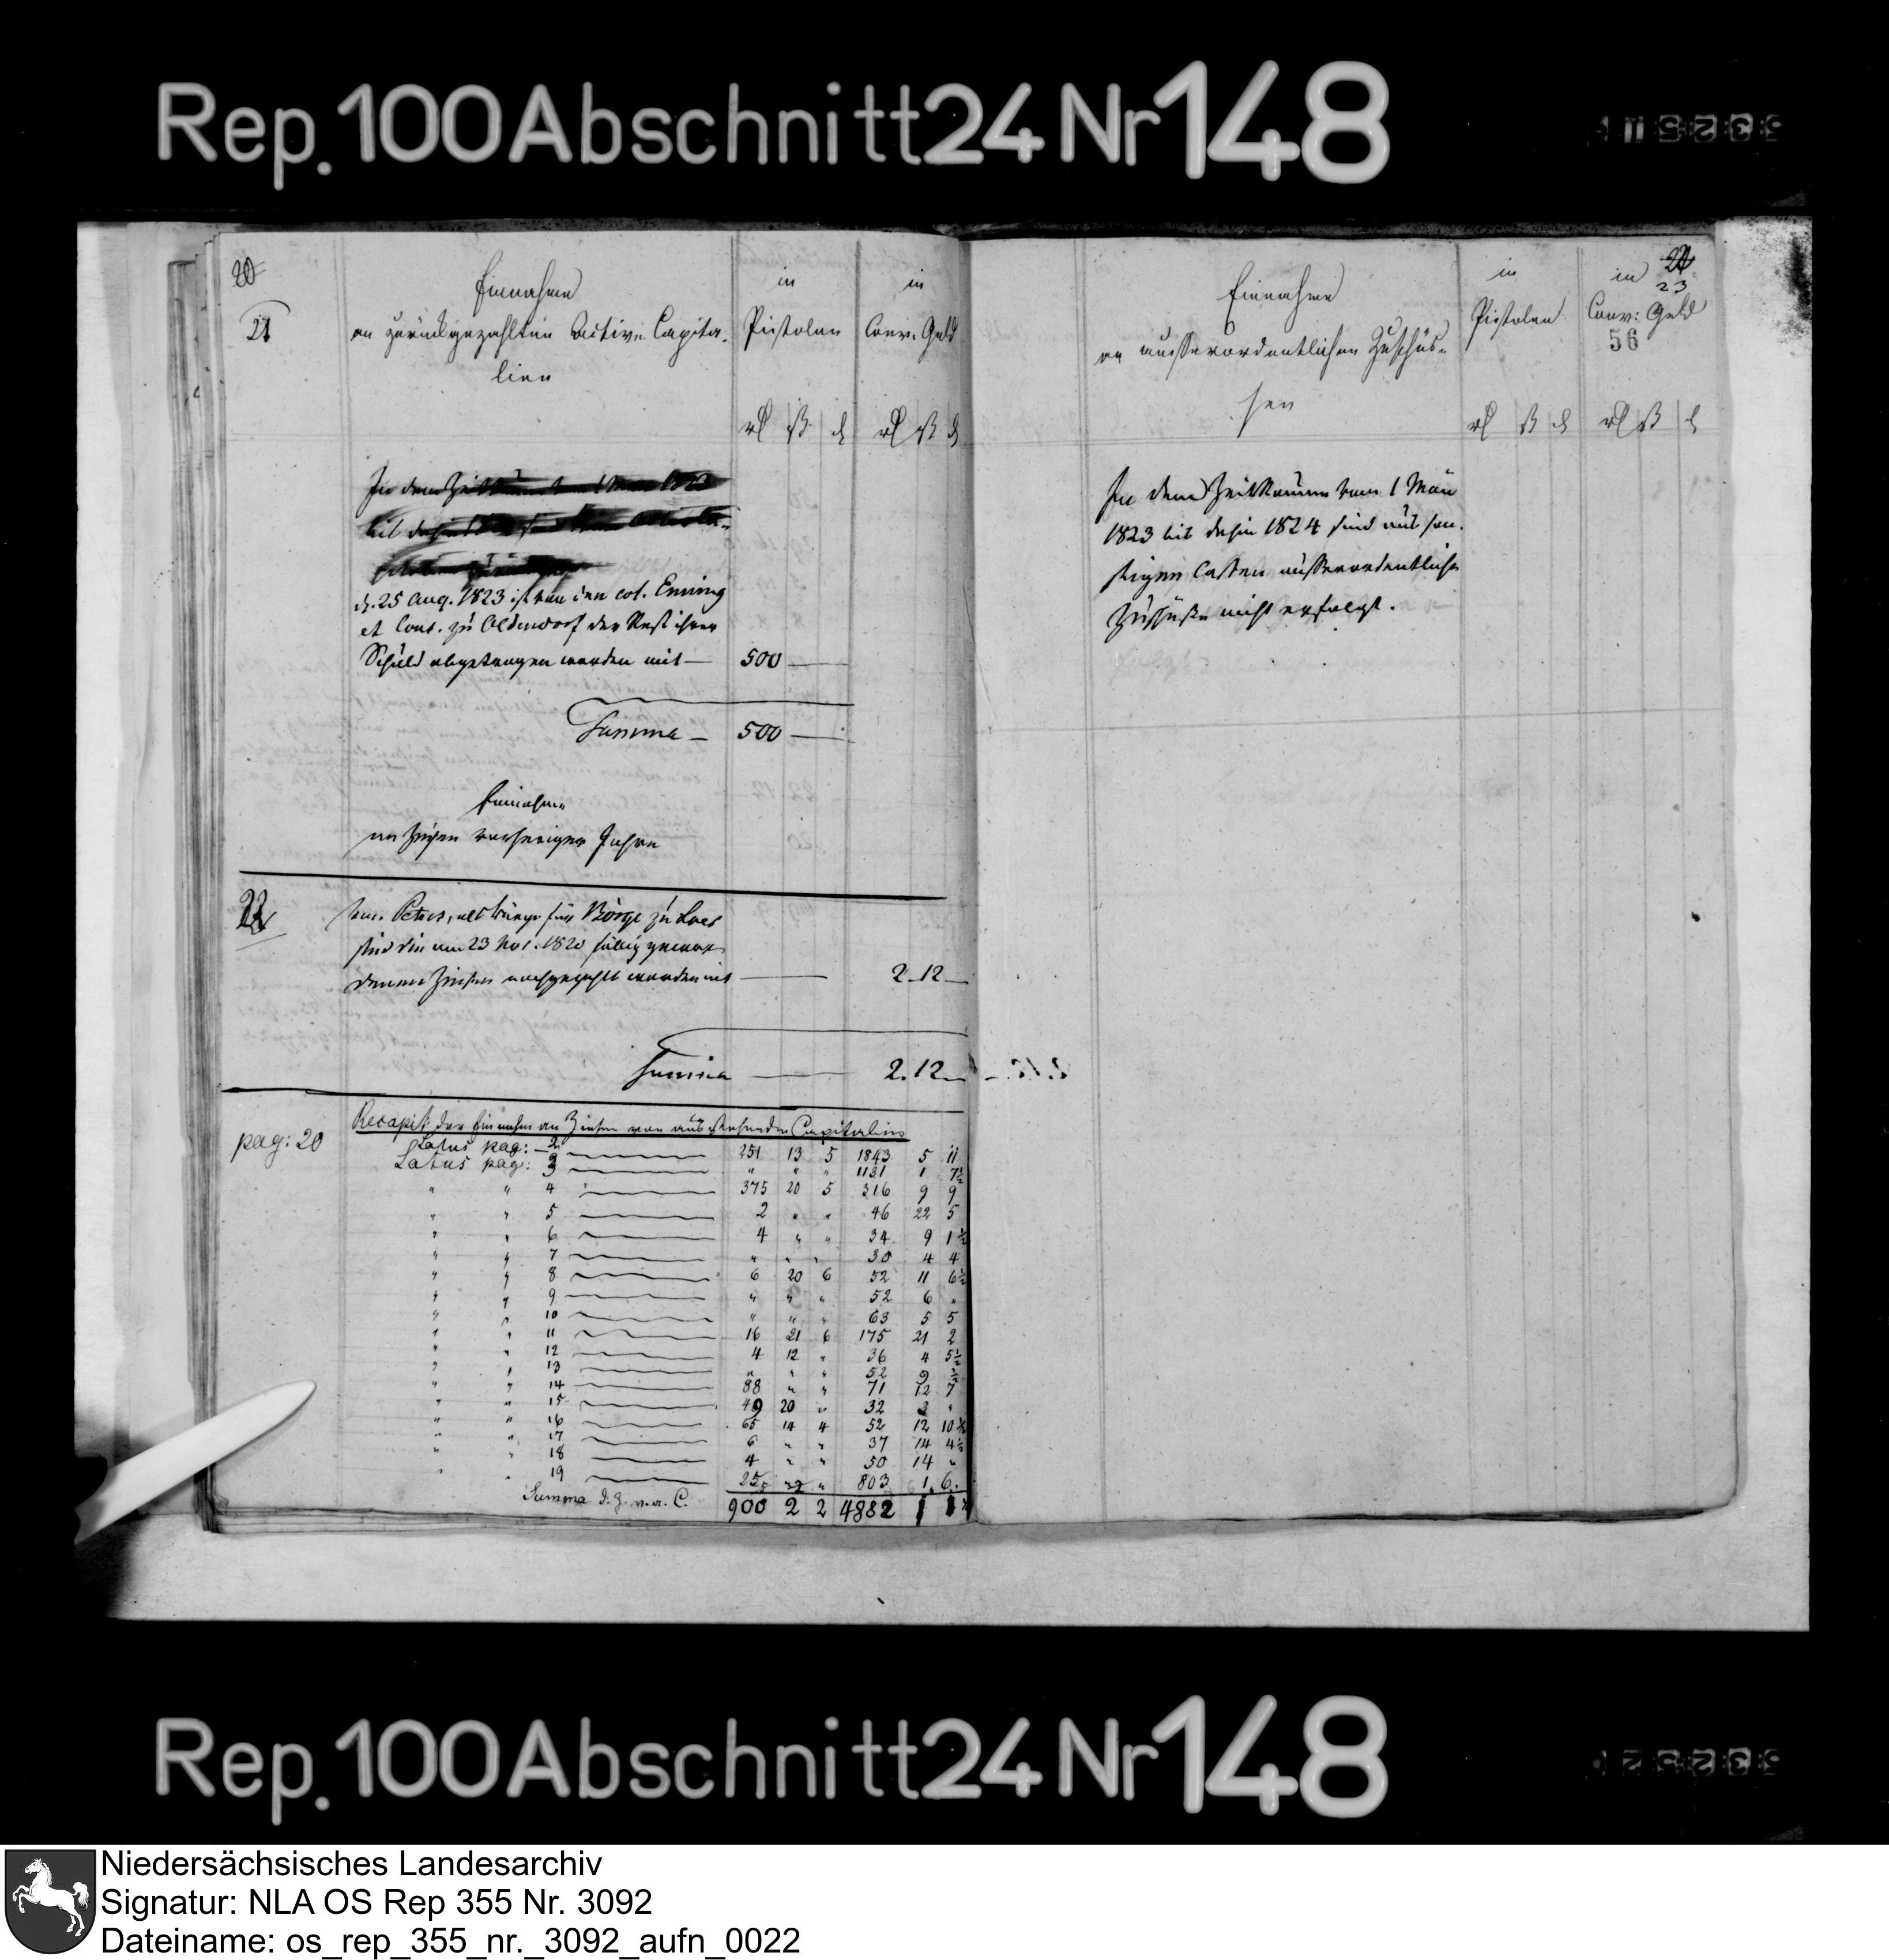 Rep. 100 Abschnitt 24 Nr 148
20
21
Einnahme
an zurückgezahlten Activ-Capita-
lien
in
Pistolen
in
Conv. Geld
rl ß d
rl ß d
In dem Zeitraum vom 1 März 1823
bis dahin
d. 25 Aug. 1823 ist von den col. Enning
et Cons. zu Oldendorf der Rest ihrer
Schuld abgetragen worden mit — 500 —
Summa — 500 —
Einnahme
an Zinsen vorheriger Jahre
22
von Peters, als Bürge für Börge zu Laer
sind die am 23 Nov. 1820 fällig gewor-
denen Zinsen nachgezahlt worden mit — 2. 12 —
Summa — 2. 12 —
pag: 20
Recapit: der Einnahme an Zinsen von ausstehenden Capitalien
Latus pag: 2 — 251 13 5 1843 5 11
Latus pag: 3 — " " " 1131 1 7½
" " 4 — 375 20 5 316 9 9
" " 5 — 2 " " 46 22 5
" " 6 — 4 " " 34 9 1½
" " 7 — " " " 30 4 4
" " 8 — 6 20 6 52 11 6½
" " 9 — " " " 52 6 "
" " 10 — " " " 63 5 5
" " 11 — 16 21 6 175 21 2
" " 12 — 4 12 " 36 4 5½
" " 13 — " " " 52 9 ½
" " 14 — 88 " " 71 12 7
" " 15 — 49 20 " 32 3 "
" " 16 — 65 14 4 52 12 10½
" " 17 — 6 " " 37 14 4½
" " 18 — 4 " " 50 14 "
" " 19 — 25 " 803 1. 6.
Summa d. Z. v. a. C. 900 2 2 4882 1 1½
Einnahme
an ausserordentlichen Zuschüs-
sen
in
Pistolen
in
Conv: Geld
23
56
rl ß d
rl ß d
In dem Zeitraum vom 1 März
1823 bis dahin 1824 sind aus son-
stigen Cassen ausserordentliche
Zuschüße nicht erfolgt.
Rep. 100 Abschnitt 24 Nr 148
Niedersächsisches Landesarchiv
Signatur: NLA OS Rep 355 Nr. 3092
Dateiname: os_rep_355_nr._3092_aufn_0022